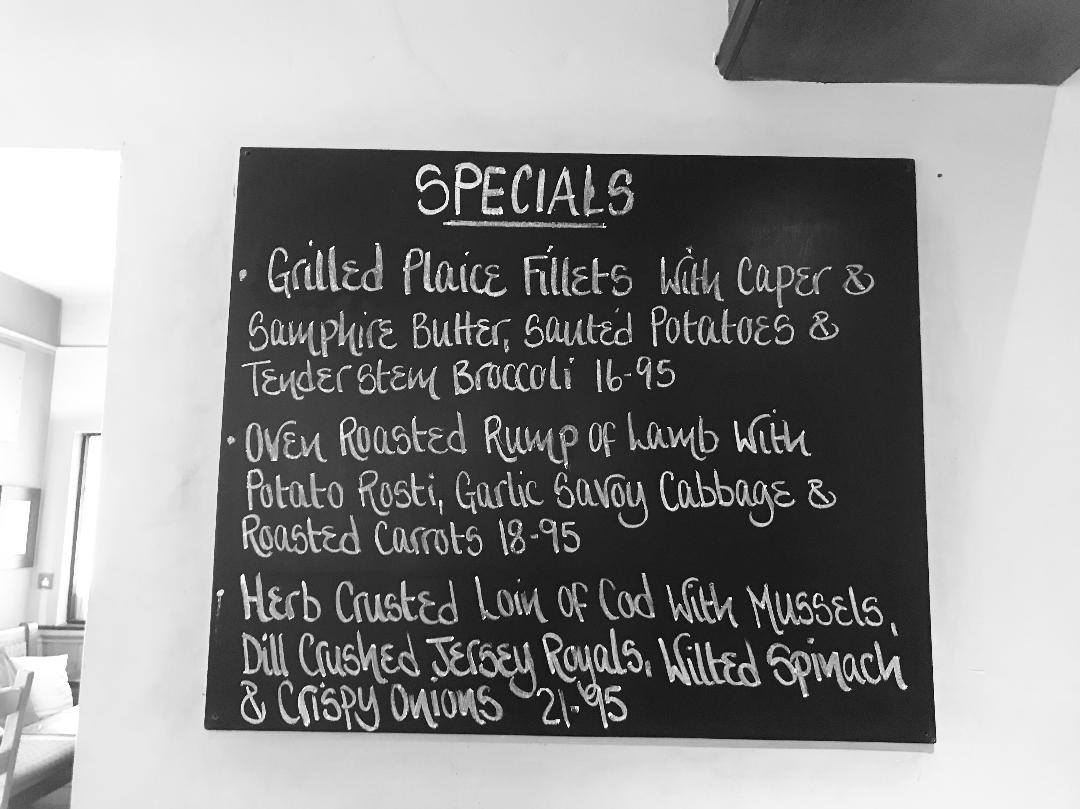 SPECIALS
• Grilled Plaice Fillets With Caper &
Samphire Butter, Sauted Potatoes &
Tenderstem Broccoli 16-95
• Oven Roasted Rump of Lamb With
Potato Rosti, Garlic Savoy Cabbage &
Roasted Carrots 18-95
• Herb Crusted Loin of Cod With Mussels,
Dill Crushed Jersey Royals, Wilted Spinach
& Crispy Onions 21-95